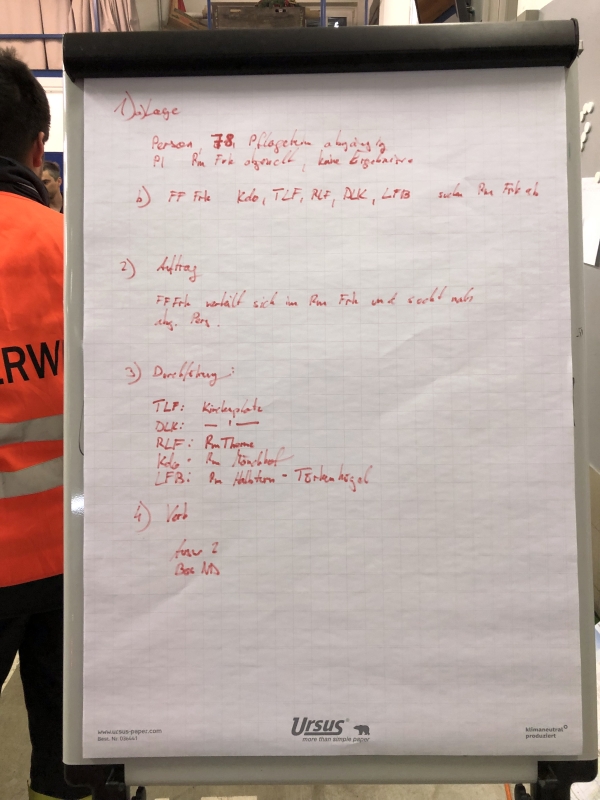 1) a) Lage
Person, 78, Pflegeheim abgängig
PI Rm Frh abgesucht, keine Ergebnisse
b) FF Frh Kdo, TLF, RLF, DLK, LFB suchen Rm Frh ab
2) Auftrag
FF Frh verhält sich im Rm Frh und sucht nach
abg. Pers.
3) Durchführung:
TLF: Kirchenplatz
DLK: — " —
RLF: Rm Therme
Kdo: Rm Mönchhof
LFB: Rm Halbturn - Törkenhügel
4) Verb
2
Bos ND
ERW
Ursus®
more than simple paper
www.ursus-paper.com
klimaneutral
produziert